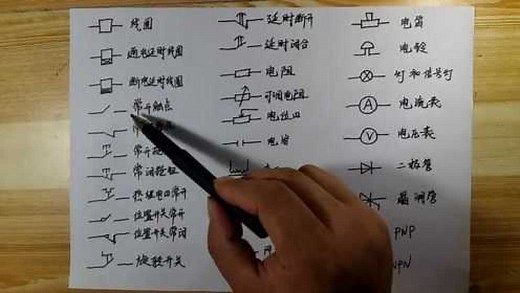 线圈
通电延时线圈
断电延时线圈
常开触点
常开按
常闭按钮
热继电口常开
位置开关常开
位置开关常闭
旋钮开关
延时断开
延时闭合
电阻
可调电阻
电位口
电容
电笛
电铃
灯和信号灯
A 电流表
V 电压表
二极管
PNP
NPN